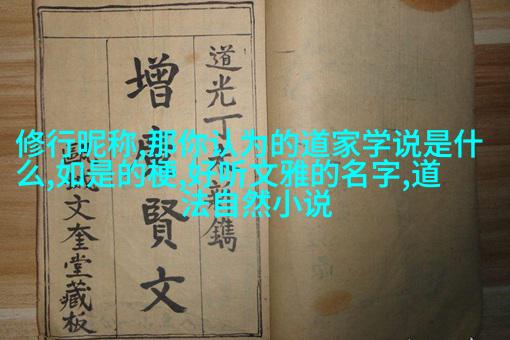 修行昵称,那你认为的道家学说是什
么,如是的梗,好听文雅的名字,道
法自然小说
道光丁新鐫
增廣賢文
文奎堂藏板